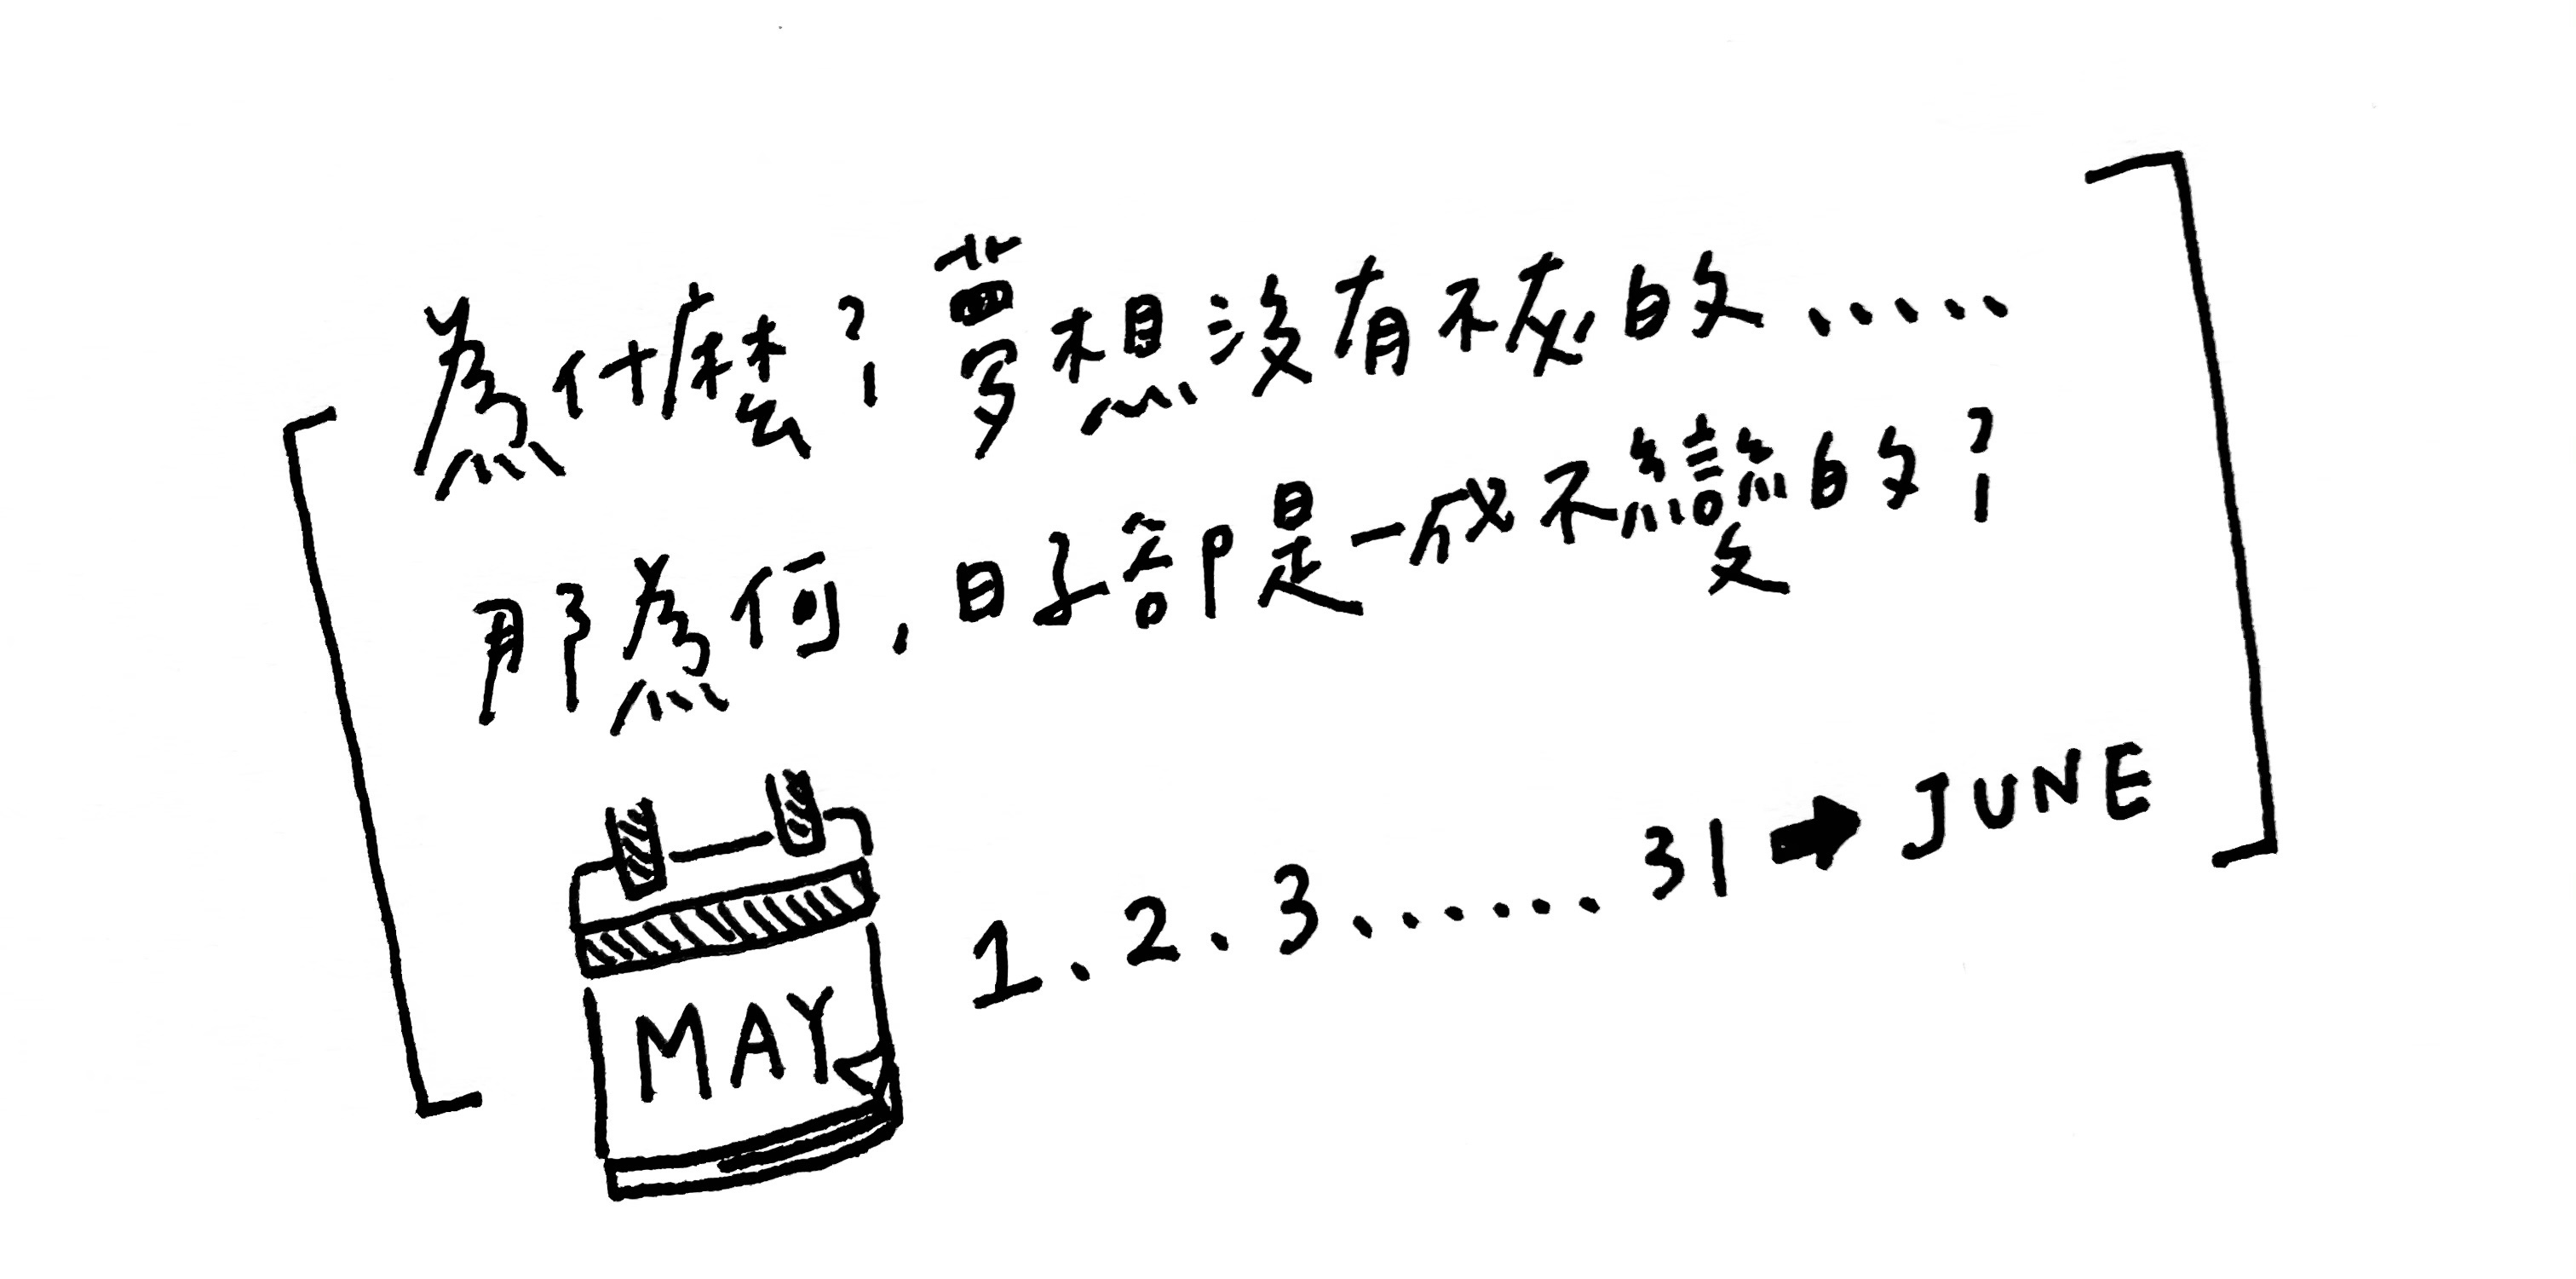 為什麼?夢想沒有不灰的.....
那為何,日子卻是一成不變的?
MAY 1.2.3...... 31 ➡ JUNE